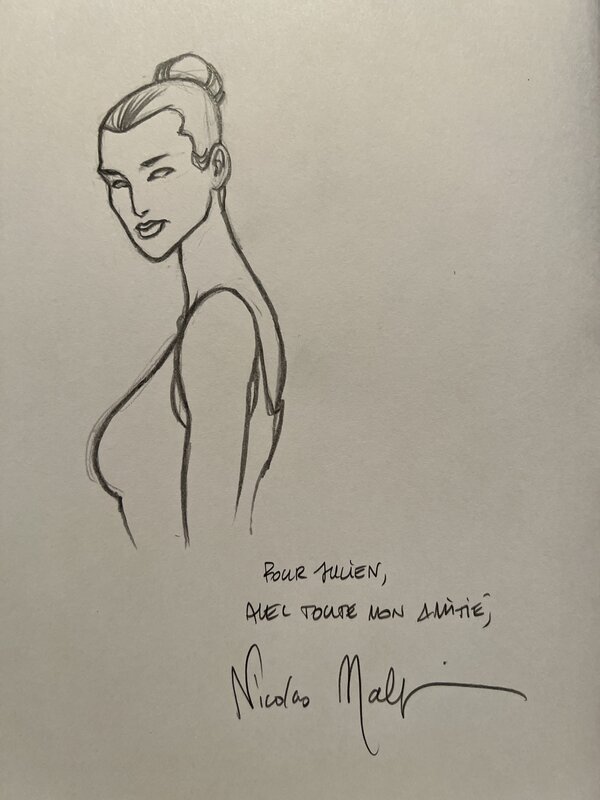 POUR JULIEN,
AVEC TOUTE MON AMITIÉ,
Nicolas Malfin